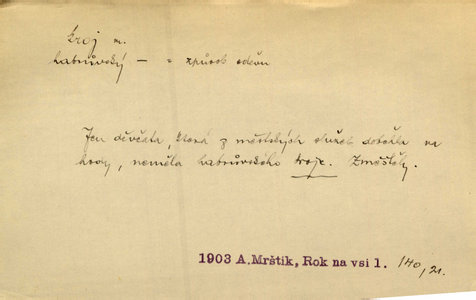 kroj m.
habrůvský — = způsob oděvu
Jen děvčata, která z městských služeb doběhla na
hody, neměla habrůvského kroje. Změštěly.
1903 A. Mrštík, Rok na vsi 1. 140, 21.